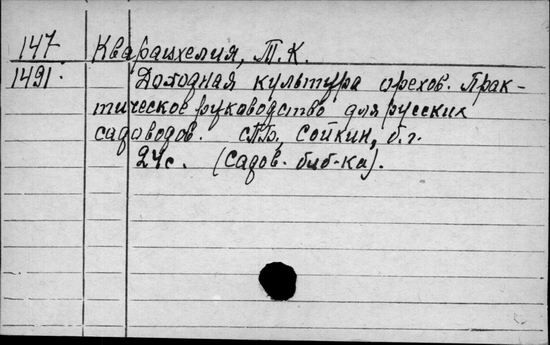 147 Кварацхелия, Т.К.
1491. Доходная культура орехов. Прак-
тическое руководство для русских
садоводов. СПБ, Сойкин, б.г.
24с. (Садов. библ-ка).